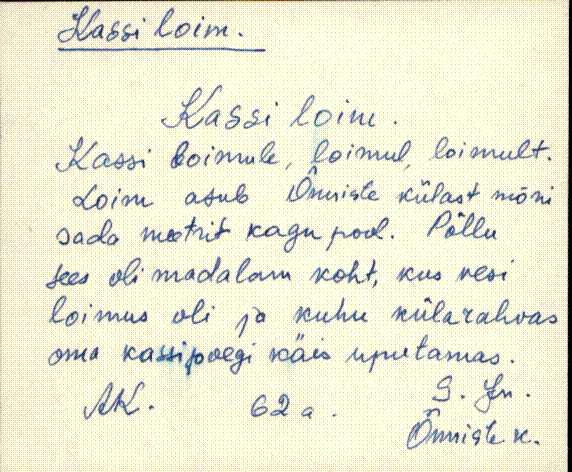 Kassi loim.
Kassi loim.
Kassi loimule, loimul, loimult.
Loim asub Õnniste külast mõni
sada meetrit kagu pool. Põllu
sees oli madalam koht, kus vesi
loimus oli ja kuhu külarahvas
oma kassipoegi käis uputamas.
AK. 62 a. S. Jn.
Õnniste k.